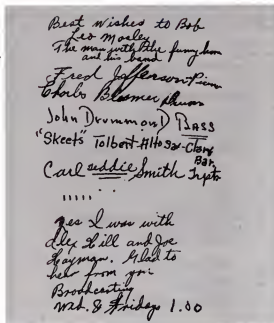 Best Wishes to Bob
Leo Mosley
The man with the funny horn
and his band
Fred Jefferson - Piano
Charles Drums
John Drummond Bass
"Skeets" Tolbert - Alto Sax - Clar
Bar.
Carl "eddie" Smith Trpt.
yes I was with
Alex Hill and Joe
Haymon. Glad to
hear from you
Broadcasting
Wed. & Friday 1.00